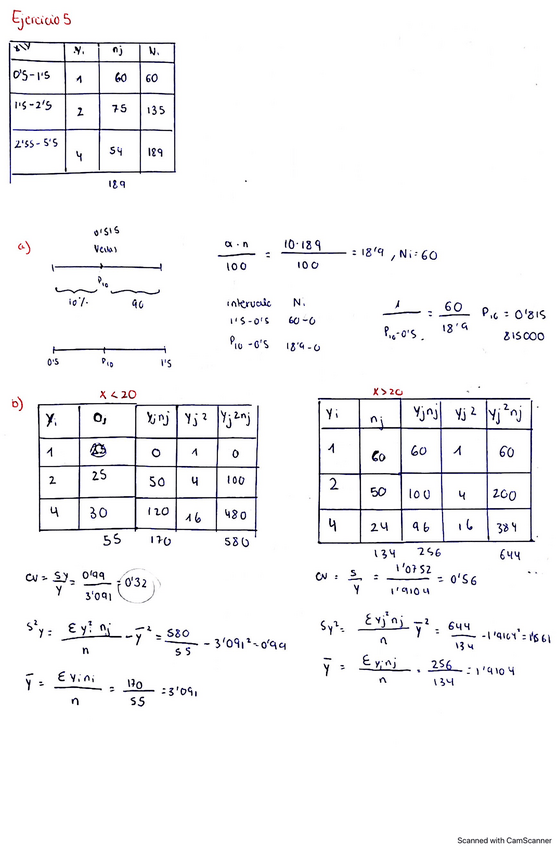 Ejercicio 5
x\y Yi nj Ni
0'5-1'5 1 60 60
1'5-2'5 2 75 135
2'55-5'5 4 54 189
189
a)
0'515
P10
10% 90
0'5 P10 1'5
α·n / 100 = 10·189 / 100 = 18'9 , Ni=60
intervalo Ni
1'5-0'5 60-0
P10-0'5 18'9-0
1 / P10-0'5 = 60 / 18'9 P10 = 0'815
815000
b)
x<20
Yi nj yjnj yj2 yj2nj
1 0 1 0
2 25 50 4 100
4 30 120 16 480
55 170 580
CV = Sy / y = 0'99 / 3'091 = 0'32
S²y = Σ y²i nj / n - ȳ² = 580 / 55 - 3'091² = 0'99
ȳ = Σ yi ni / n = 170 / 55 = 3'091
x>20
Yi nj yjnj yj2 yj2nj
1 60 60 1 60
2 50 100 4 200
4 24 96 16 384
134 256 644
CV = S / y = 1'0752 / 1'9104 = 0'56
Sy² = Σ yj² nj / n ȳ² = 644 / 134 - 1'9104² =
ȳ = Σ yj nj / n = 256 / 134 = 1'9104
Scanned with CamScanner